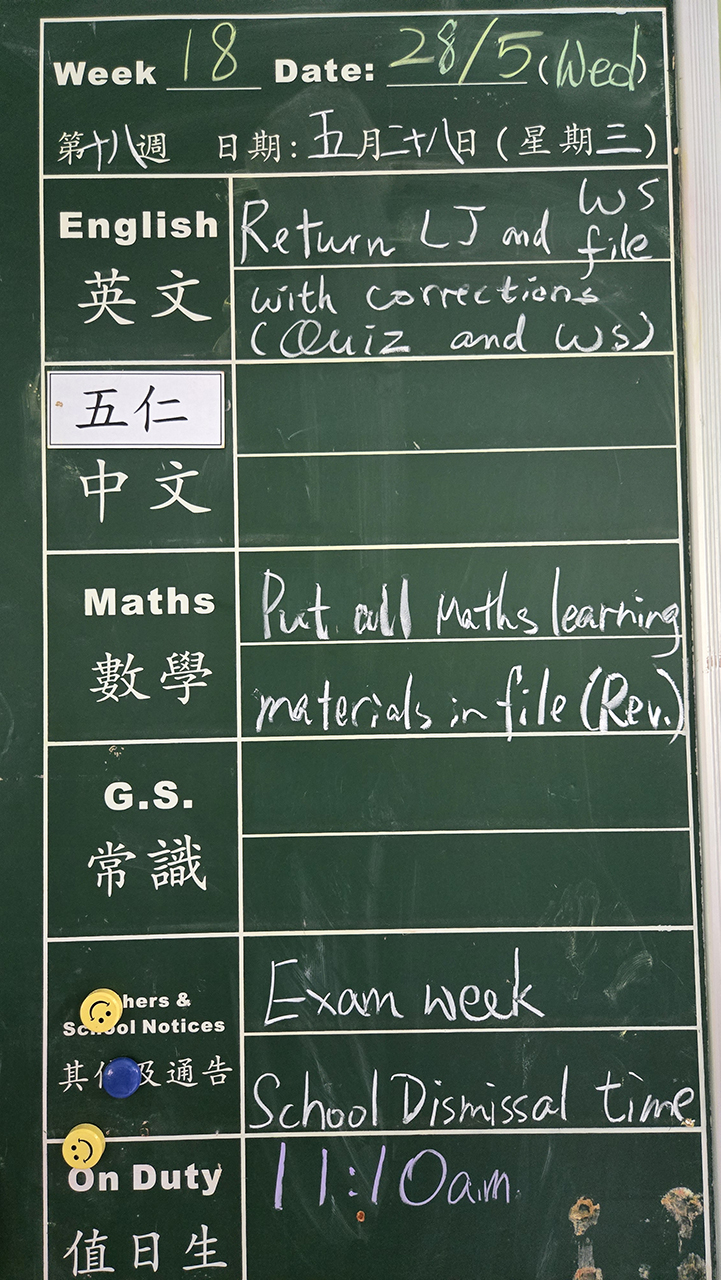 Week 18 Date: 28/5 (Wed)
第十八週 日期：五月二十八日（星期三）
English
英文
Return LJ and WS file
with corrections
(Quiz and WS)
五仁
中文
Maths
數學
Put all Maths learning
materials in file (Rev.)
G.S.
常識
hers &
School Notices
其 及通告
Exam week
School Dismissal time
On Duty
值日生
11:10am